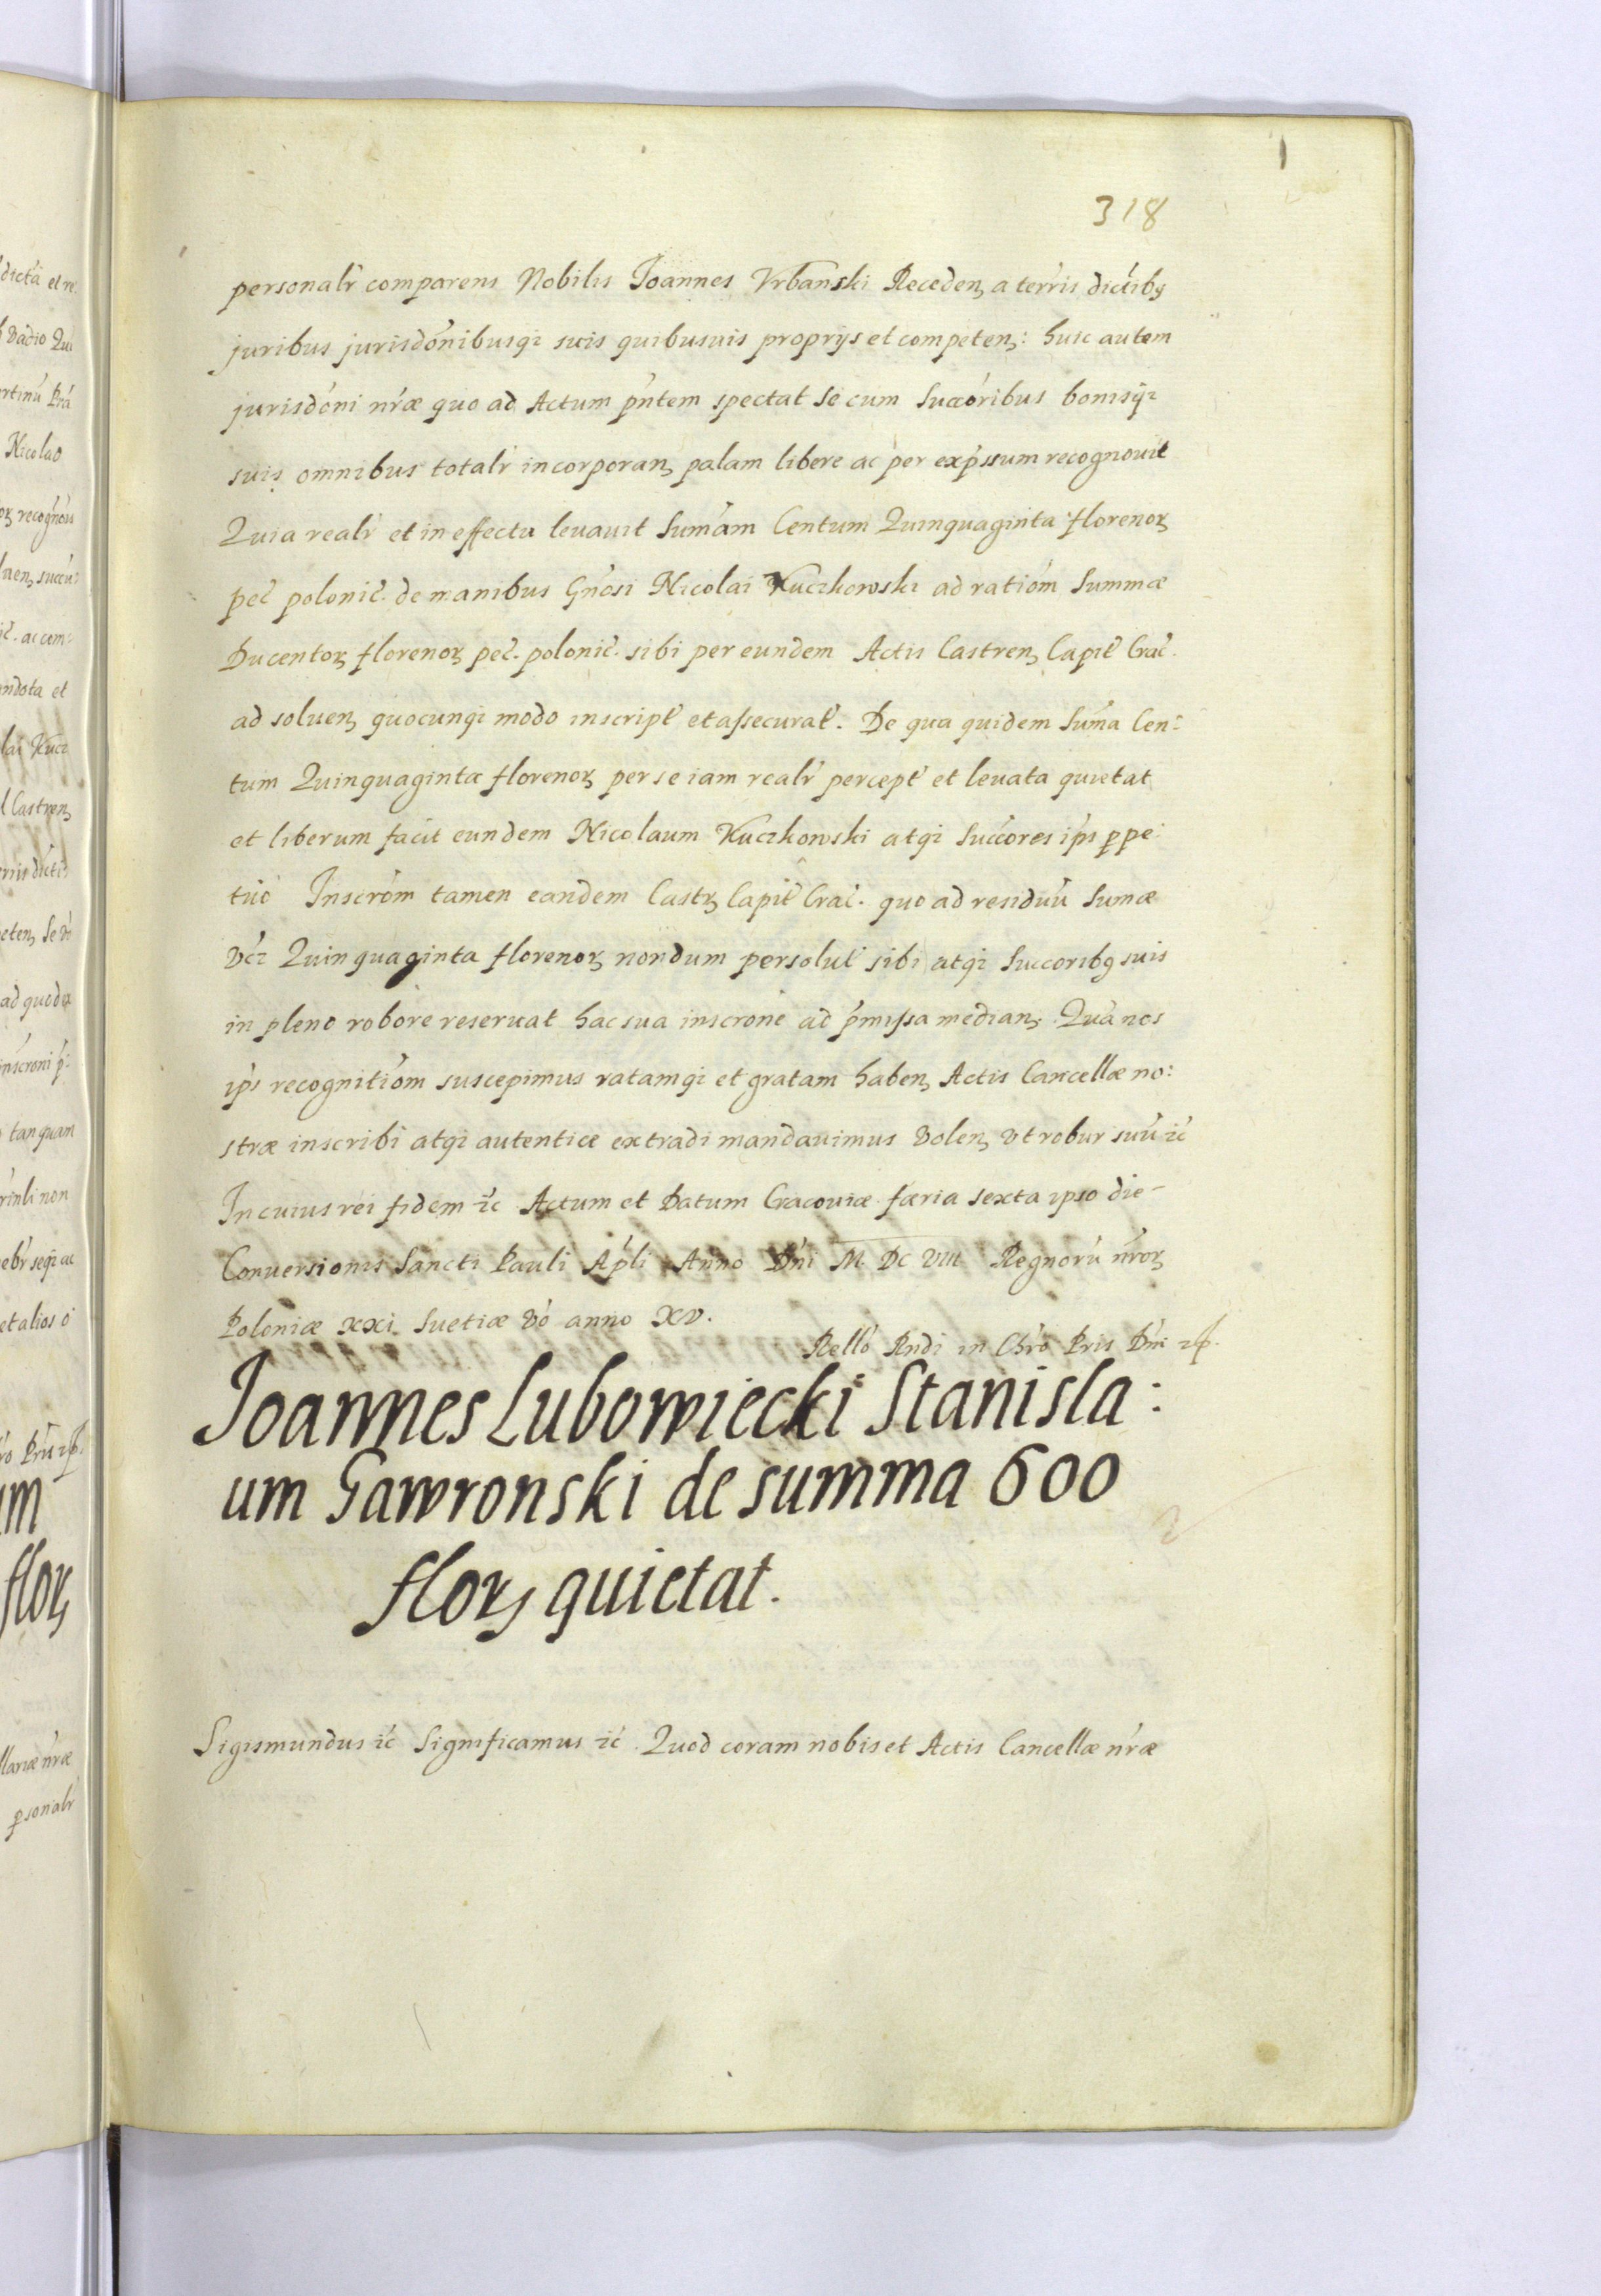 1
318
personalr̃ comparens Nobilis Joannes Vrbanski Receden̄ a terris dictibꝫ
juribus jurisdõnibusqꝫ suis quibusuis proprijs et competen̄: huic autem
jurisdõni nr̃æ quo ad Actum p̃ntem spectat se cum succõribus bonisqꝫ
suis omnibus totalr̃ incorporan̄ palam libere ac per exp̃ssum recognouit
Quia realr̃ et in effectu leuauit Sum̃am Centum Quinquaginta florenoꝝ
pec̃ polonic̃. de manibus Gñosi Nicolai Kuczkowski ad ratiõm Summæ
Ducentoꝝ florenoꝝ pec̃. polonic̃. sibi per eundem Actis Castren̄ Capit̃ Crac̃.
ad soluen̄ quocunqꝫ modo inscript̃ et assecurat̃. De qua quidem Sum̃a Cen:
tum Quinquaginta florenoꝝ per se iam realr̃ percept̃ et leuata quietat
et liberum facit eundem Nicolaum Kuczkowski atqꝫ succõres ip̃s ꝑpe:
tuo Inscrõm tamen eandem Castꝝ Capit̃ Crac̃. quo ad residuũ Sum̃æ
vꝫ Quinquaginta florenoꝝ nondum persolut̃ sibi atqꝫ succoribꝫ suis
in pleno robore reseruat hac sua inscrõne ad p̃missa median̄. Quã nos
ip̃s recognitiõm suscepimus ratamqꝫ et gratam haben̄ Actis Cancellæ no:
stræ inscribi atqꝫ autentice extradi mandauimus volen̄ vt robur suũ ꝛc̃
In cuius rei fidem ꝛc̃ Actum et Datum Cracouiæ færia sexta ipso die
Conuersionis Sancti Pauli Ap̃li Anno Dñi M. DC VIII Regnorũ nr̃oꝝ
Poloniæ XXI Suetiæ võ anno XV.
Rellõ Rñdi in Chrõ Pris Dñi
Joannes Lubowiecki Stanisla:
um Gawronski de summa 600
floꝝ quietat.
Sigismundus ꝛc̃ Significamus ꝛc̃. Quod coram nobis et Actis Cancellæ nr̃æ